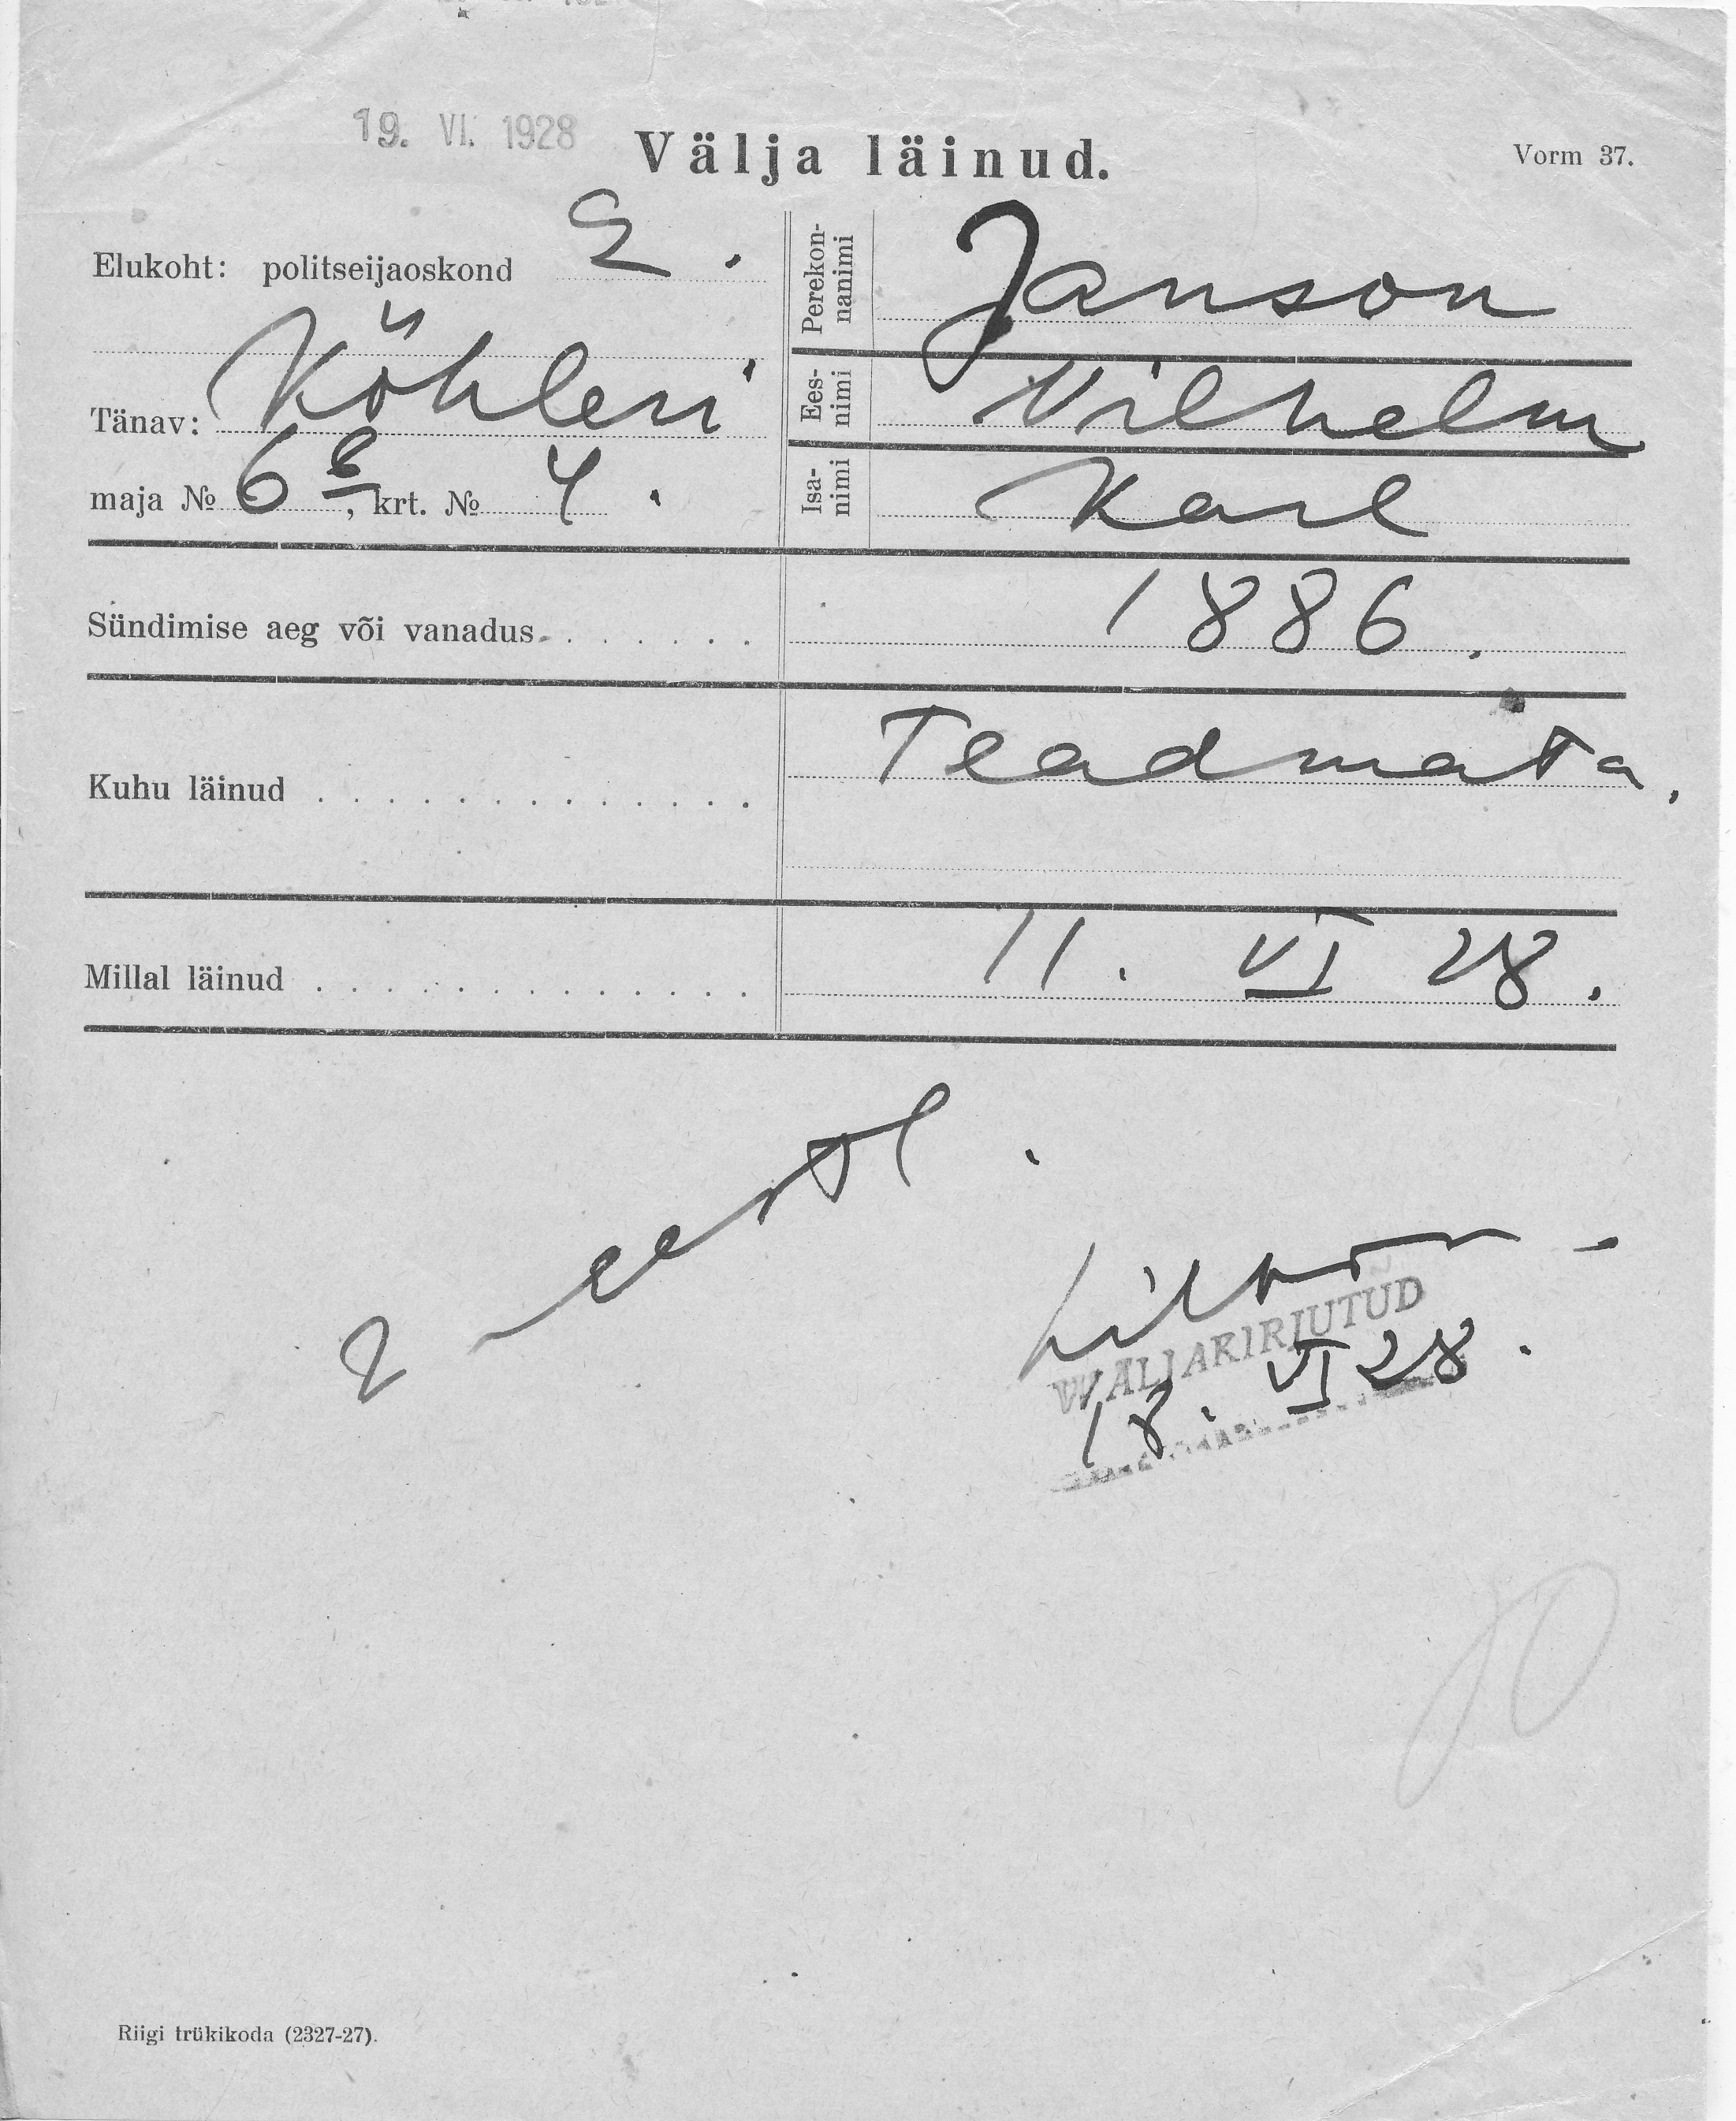 19. VI. 1928
Välja läinud.
Vorm 37.
Elukoht: politseijaoskond 2.
Tänav: Köhleri
maja № 6, krt. № 4.
Perekon-
nanimi
Janson
Ees-
nimi
Vilhelm
Isa-
nimi
Karl
Sündimise aeg või vanadus. . . . . . . 1886.
Kuhu läinud . . . . . . . . . . . . . Teadmata.
Millal läinud . . . . . . . . . . . . . 11. VI 28.
WÄLJAKIRJUTUD
18. VI 28.
Riigi trükikoda (2327-27).